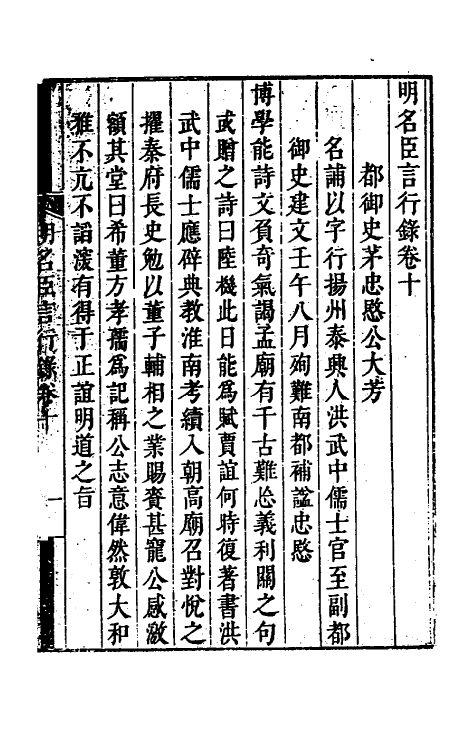 明名臣言行錄卷十
都御史茅忠愍公大芳
名誧以字行揚州泰興人洪武中儒士官至副都
御史建文壬午八月殉難南都補諡忠愍
博學能詩文負奇氣謁孟廟有千古難忘義利關之句
或贈之詩曰陸機此日能為賦賈誼何時復著書洪
武中儒士應辟典教淮南考績入朝高廟召對悅之
擢秦府長史勉以董子輔相之業賜賚甚寵公感激
額其堂曰希董方孝孺為記稱公志意偉然敦大和
雅不亢不諂淡有得于正誼明道之旨
明名臣言行錄卷十
一